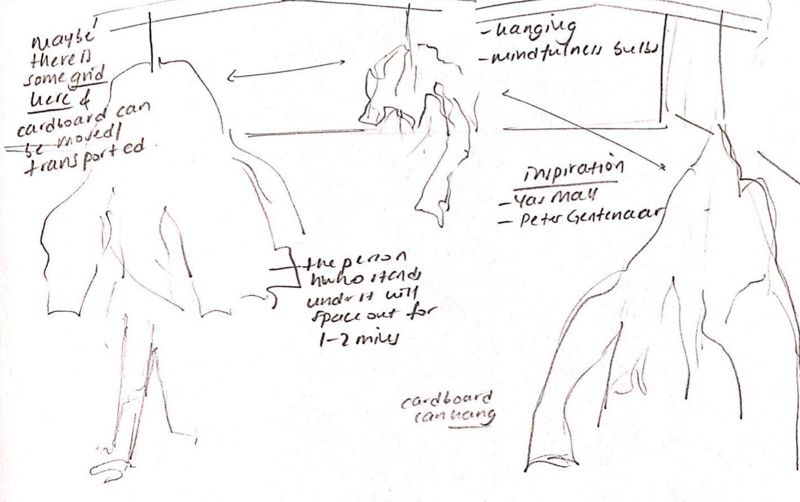 maybe
there is
some grid
here &
cardboard can
be moved/
transported
- hanging
- mindfulness bulbs
inspiration
- Yas Mall
- Peter Gentenaar
the person
who stands
under it will
space out for
1-2 mins
cardboard
can hang